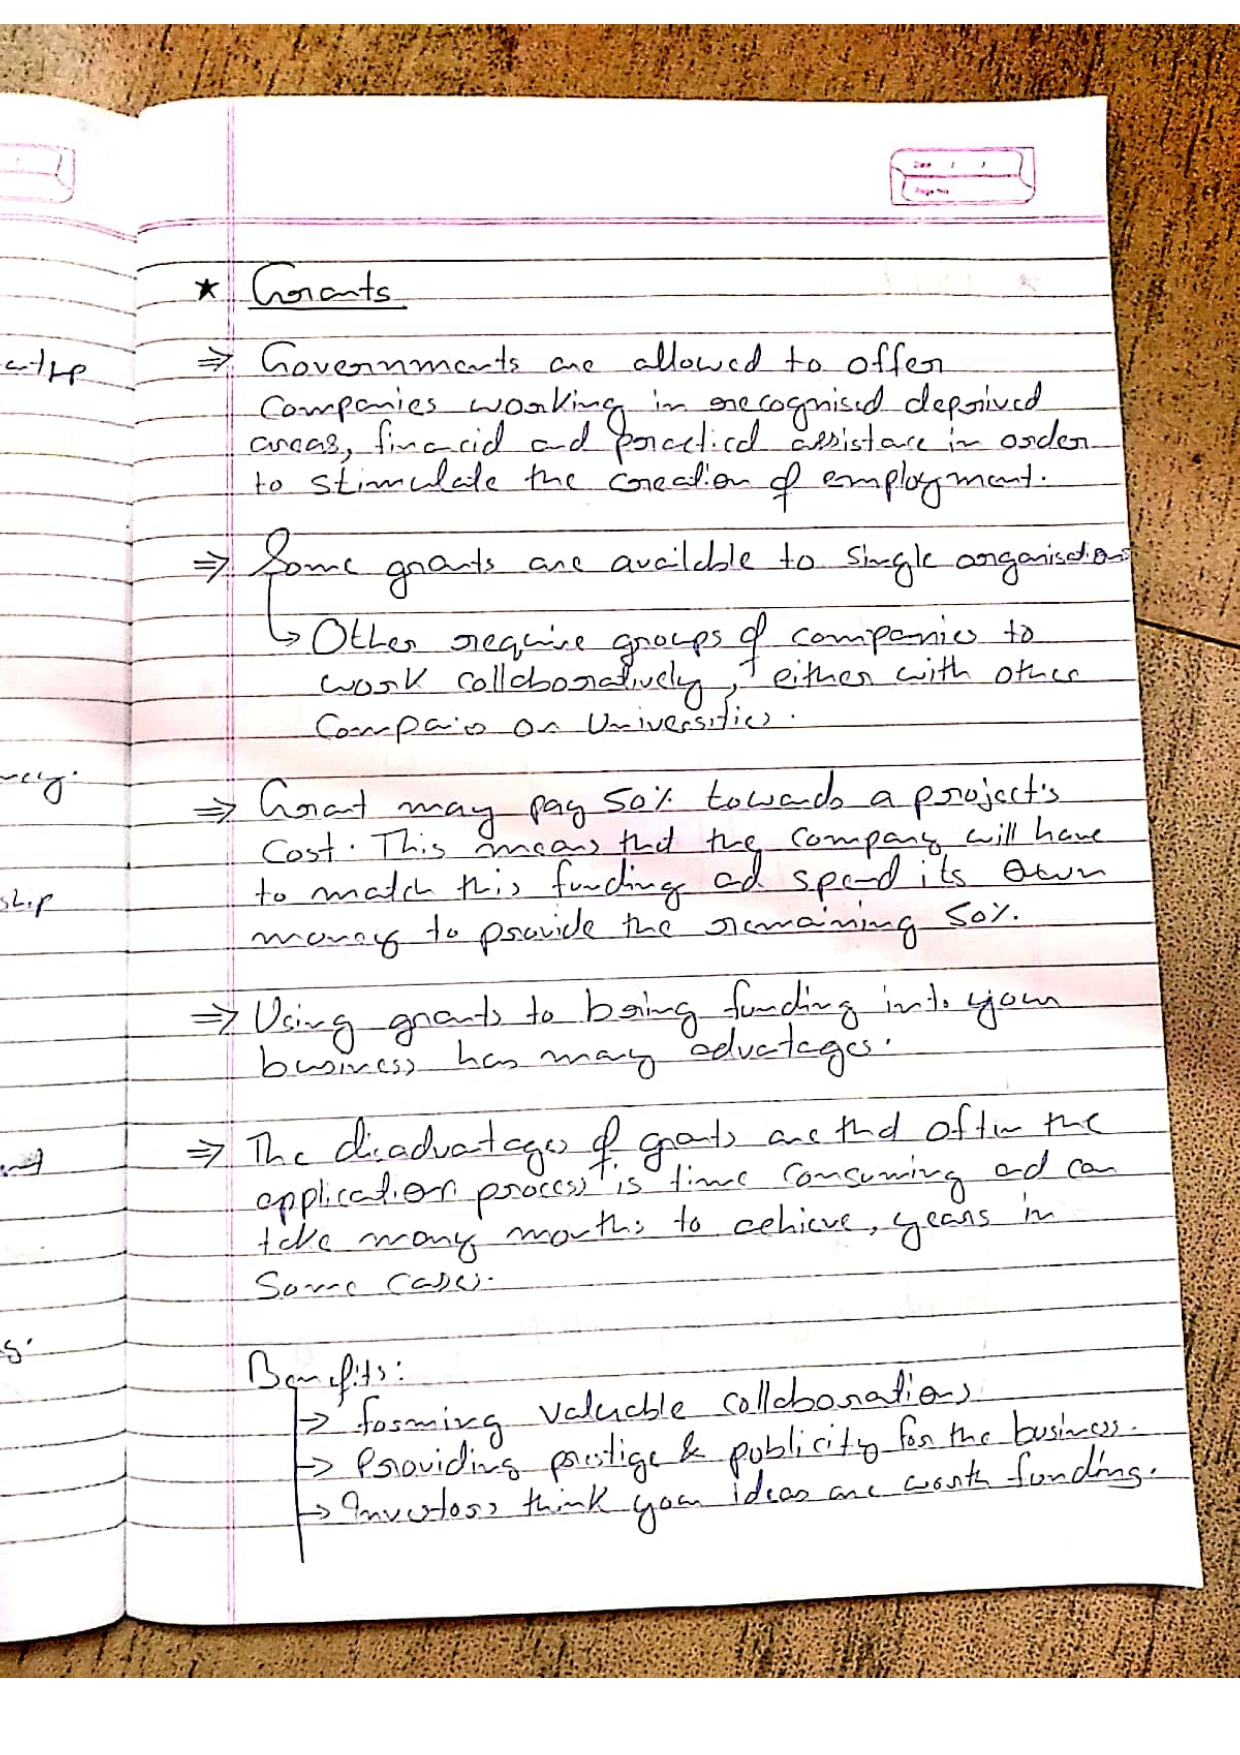 Date / /
Page No.
★ Grants
⇒ Governments are allowed to offer
companies working in recognised deprived
areas, financial and practical assistance in order
to stimulate the creation of employment.
⇒ Some grants are available to single organisations
↳ Other require groups of companies to
work collaboratively, either with other
companies or universities.
⇒ Grant may pay 50% towards a project's
cost. This means that the company will have
to match this funding and spend its own
money to provide the remaining 50%.
⇒ Using grants to bring funding into your
business has many advantages.
⇒ The disadvantages of grants are that often the
application process is time consuming and can
take many months to achieve, years in
some cases.
Benefits:
→ forming valuable collaborations
→ Providing prestige & publicity for the business.
→ Investors think your ideas are worth funding.
ship
s.